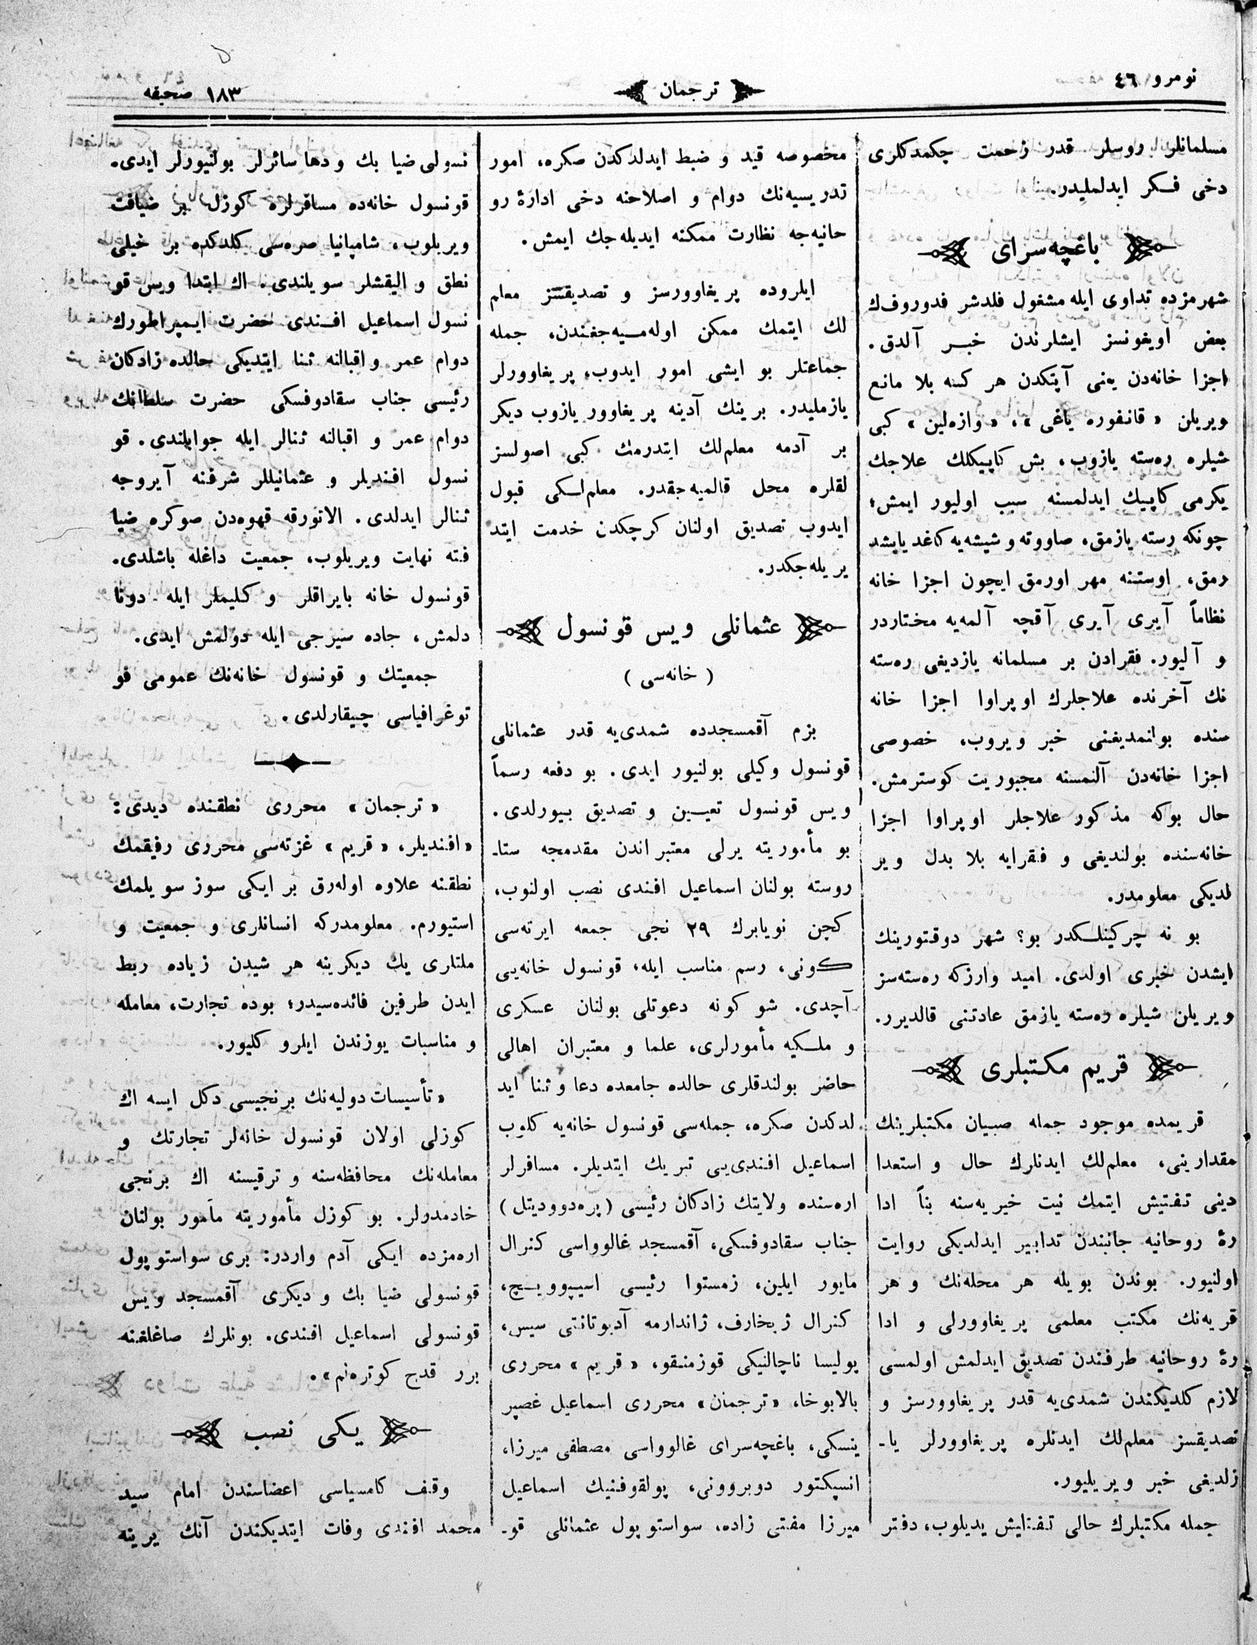 نومرو ٤٦
ترجمان
١٨٣ صحيفه
مسلمانلر روسلر قدر زحمت چكمدكلرى
دخى فكر ايدلمليدر.
باغچه‌سراى
شهرمزده تداوى ايله مشغول فلدشر فدوروف‌ك
بعض اويغونسز ايشلرندن خبر آلدق.
اجزا خانه‌دن يعنى آپتكدن هر كسه بلا مانع
ويريلن «قانفوره ياغى»، «وازه‌لين» كبى
شيلره ره‌سته يازوب، بش كاپيكلك علاجك
يكرمى كاپيك ايدلمسنه سبب اوليور ايمش؛
چونكه رسته يازمق، صاووته و شيشه‌يه كاغد ياپشد
رمق، اوستنه مهر اورمق ايچون اجزا خانه
نظاماً آيرى آيرى آقچه آلمه‌يه مختاردر
و آليور. فقرادن بر مسلمانه يازديغى ره‌سته
نك آخرنده علاجلرك اوپراوا اجزا خانه
سنده بولنمديغنى خبر ويروب، خصوصى
اجزا خانه‌دن آلنمسنه مجبوريت كوسترمش.
حال بوكه مذكور علاجلر اوپراوا اجزا
خانه‌سنده بولنديغى و فقرايه بلا بدل وير
لديكى معلومدر.
بو نه چركينلكدر بو؟ شهر دوقتورينك
ايشدن خبرى اولدى. اميد وارزكه ره‌سته‌سز
ويريلن شيلره ره‌سته يازمق عادتنى قالديرر.
قريم مكتبلرى
قريمده موجود جمله صبيان مكتبلرينك
مقدارينى، معلملك ايدنلرك حال و استعدا
دينى تفتيش ايتمك نيت خيريه‌سنه بناً ادا
رۀ روحانيه جانبندن تدابير ايدلديكى روايت
اولنيور. بوندن بويله هر محله‌نك و هر
قريه‌نك مكتب معلمى پريغاوورلى و ادا
رۀ روحانيه طرفندن تصديق ايدلمش اولمسى
لازم كلديكندن شمدى‌يه قدر پريغاوورسز و
تصديقسز معلملك ايدنلره پريغاوورلر يا-
زلديغى خبر ويريليور.
جمله مكتبلرك حالى تفتايش يديلوب، دفتر
مخصوصه قيد و ضبط ايدلدكدن صكره، امور
تدريسيه‌نك دوام و اصلاحنه دخى ادارۀ رو
حانيه‌جه نظارت ممكنه ايديله‌جك ايمش.
ايلروده پريغاوورسز و تصديقسز معلم
لك ايتمك ممكن اوله‌ميه‌جغندن، جمله
جماعتلر بو ايشى امور ايدوب، پريغاوورلر
يازمليدر. برينك آدينه پريغاوور يازوب ديكر
بر آدمه معلملك ايتدرمك كبى اصولسز
لقلره محل قالميه‌جقدر. معلملكى قبول
ايدوب تصديق اولنان كرچكدن خدمت ايتد
يريله‌جكدر.
عثمانلى ويس قونسول
( خانه‌سى )
بزم آقمسجدده شمدى‌يه قدر عثمانلى
قونسول وكيلى بولنيور ايدى. بو دفعه رسماً
ويس قونسول تعيين و تصديق بيورلدى.
بو مأموريته يرلى معتبراندن مقدمجه ستا-
روسته بولنان اسماعيل افندى نصب اولنوب،
كچن نويابرك ٢٩ نجى جمعه ايرته‌سى
كونى، رسم مناسب ايله، قونسول خانه‌يى
آچدى. شو كونه دعوتلى بولنان عسكرى
و ملكيه مأمورلرى، علما و معتبران اهالى
حاضر بولندقلرى حالده جامعده دعا و ثنا ايد
لدكدن صكره، جمله‌سى قونسول خانه‌يه كلوب
اسماعيل افندى‌يى تبريك ايتديلر. مسافرلر
اره‌سنده ولايتك زادكان رئيسى (پره‌دووديتل)
جناب سقادوفسكى، آقمسجد غالوواسى كنرال
مايور ايلين، زمستوا رئيسى اسيپوويچ،
كنرال ژيخارف، ژاندارمه آديوتانتى سيس،
پوليسا ناچالنيكى قوزمنقو، «قريم» محررى
بالابوخا، «ترجمان» محررى اسماعيل غصپر
ينسكى، باغچه‌سراى غالوواسى مصطفى ميرزا،
انسپكتور دوبروونى، پولقوفنيك اسماعيل
ميرزا مفتى زاده، سواستوپول عثمانلى قو-
نسولى ضيا بك و دها سائرلر بولنيورلر ايدى.
قونسول خانه‌ده مسافرلره كوزل بر ضيافت
ويريلوب، شامپانيا صره‌سى كلدكده بر خيلى
نطق و اليقشلر سويلندى. اك ابتدا ويس قو
نسول اسماعيل افندى حضرت ايمپراطورك
دوام عمر و اقبالنه ثنا ايتديكى حالده زادكان
رئيسى جناب سقادوفسكى حضرت سلطانك
دوام عمر و اقبالنه ثنالر ايله جوابلندى. قو
نسول افنديلر و عثمانيللر شرفنه آيروجه
ثنالر ايدلدى. الاتورقه قهوه‌دن صوكره ضيا
فته نهايت ويريلوب، جمعيت داغله باشلدى.
قونسول خانه بايراقلر و كليملر ايله دوتا
دلمش، جاده سيرجى ايله دولمش ايدى.
جمعيتك و قونسول خانه‌نك عمومى فو
توغرافياسى چيقارلدى.
«ترجمان» محررى نطقنده ديدى:
«افنديلر، «قريم» غزته‌سى محررى رفيقمك
نطقنه علاوه اوله‌رق بر ايكى سوز سويلمك
استيورم. معلومدركه انسانلرى و جمعيت و
ملتلرى يك ديكرينه هر شيدن زياده ربط
ايدن طرفين فائده‌سيدر؛ بوده تجارت، معامله
و مناسبات يوزندن ايلرو كليور.
«تأسيسات دوليه‌نك برنجيسى دكل ايسه اك
كوزلى اولان قونسول خانه‌لر تجارتك و
معامله‌نك محافظه‌سنه و ترقيسنه اك برنجى
خادمدرلر. بو كوزل مأموريته مأمور بولنان
اره‌مزده ايكى آدم واردر: برى سواستوپول
قونسولى ضيا بك و ديكرى آقمسجد ويس
قونسولى اسماعيل افندى. بونلرك صاغلغنه
برر قدح كوتره‌نم».
يكى نصب
وقف كامسياسى اعضاسندن امام سيد
محمد افندى وفات ايتديكندن آنك يرينه